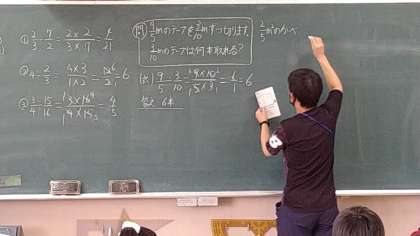 ① 2/3 ÷ 7/2 = 2×2/3×7 = 4/21
② 4 ÷ 2/3 = 4×3/1×2 = 6
③ 3/4 ÷ 15/16 = 4/5
問 9/5 mのテープを3/10 mずつ切ります。
3/10 mのテープは何本取れる?
(式) 9/5 ÷ 3/10 = 9×10/5×3 = 6/1 = 6
答え 6本
2/5 m²のかべ